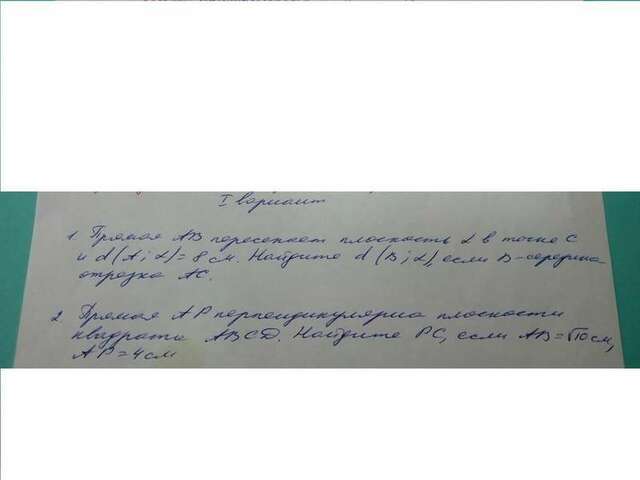 I вариант
1. Прямая AB пересекает плоскость α в точке C
и d(A; α)= 8 см. Найдите d (B; α), если B - середина
отрезка AC.
2. Прямая AP перпендикулярна плоскости
квадрата ABCD. Найдите PC, если AB = √10 см,
AP = 4 см